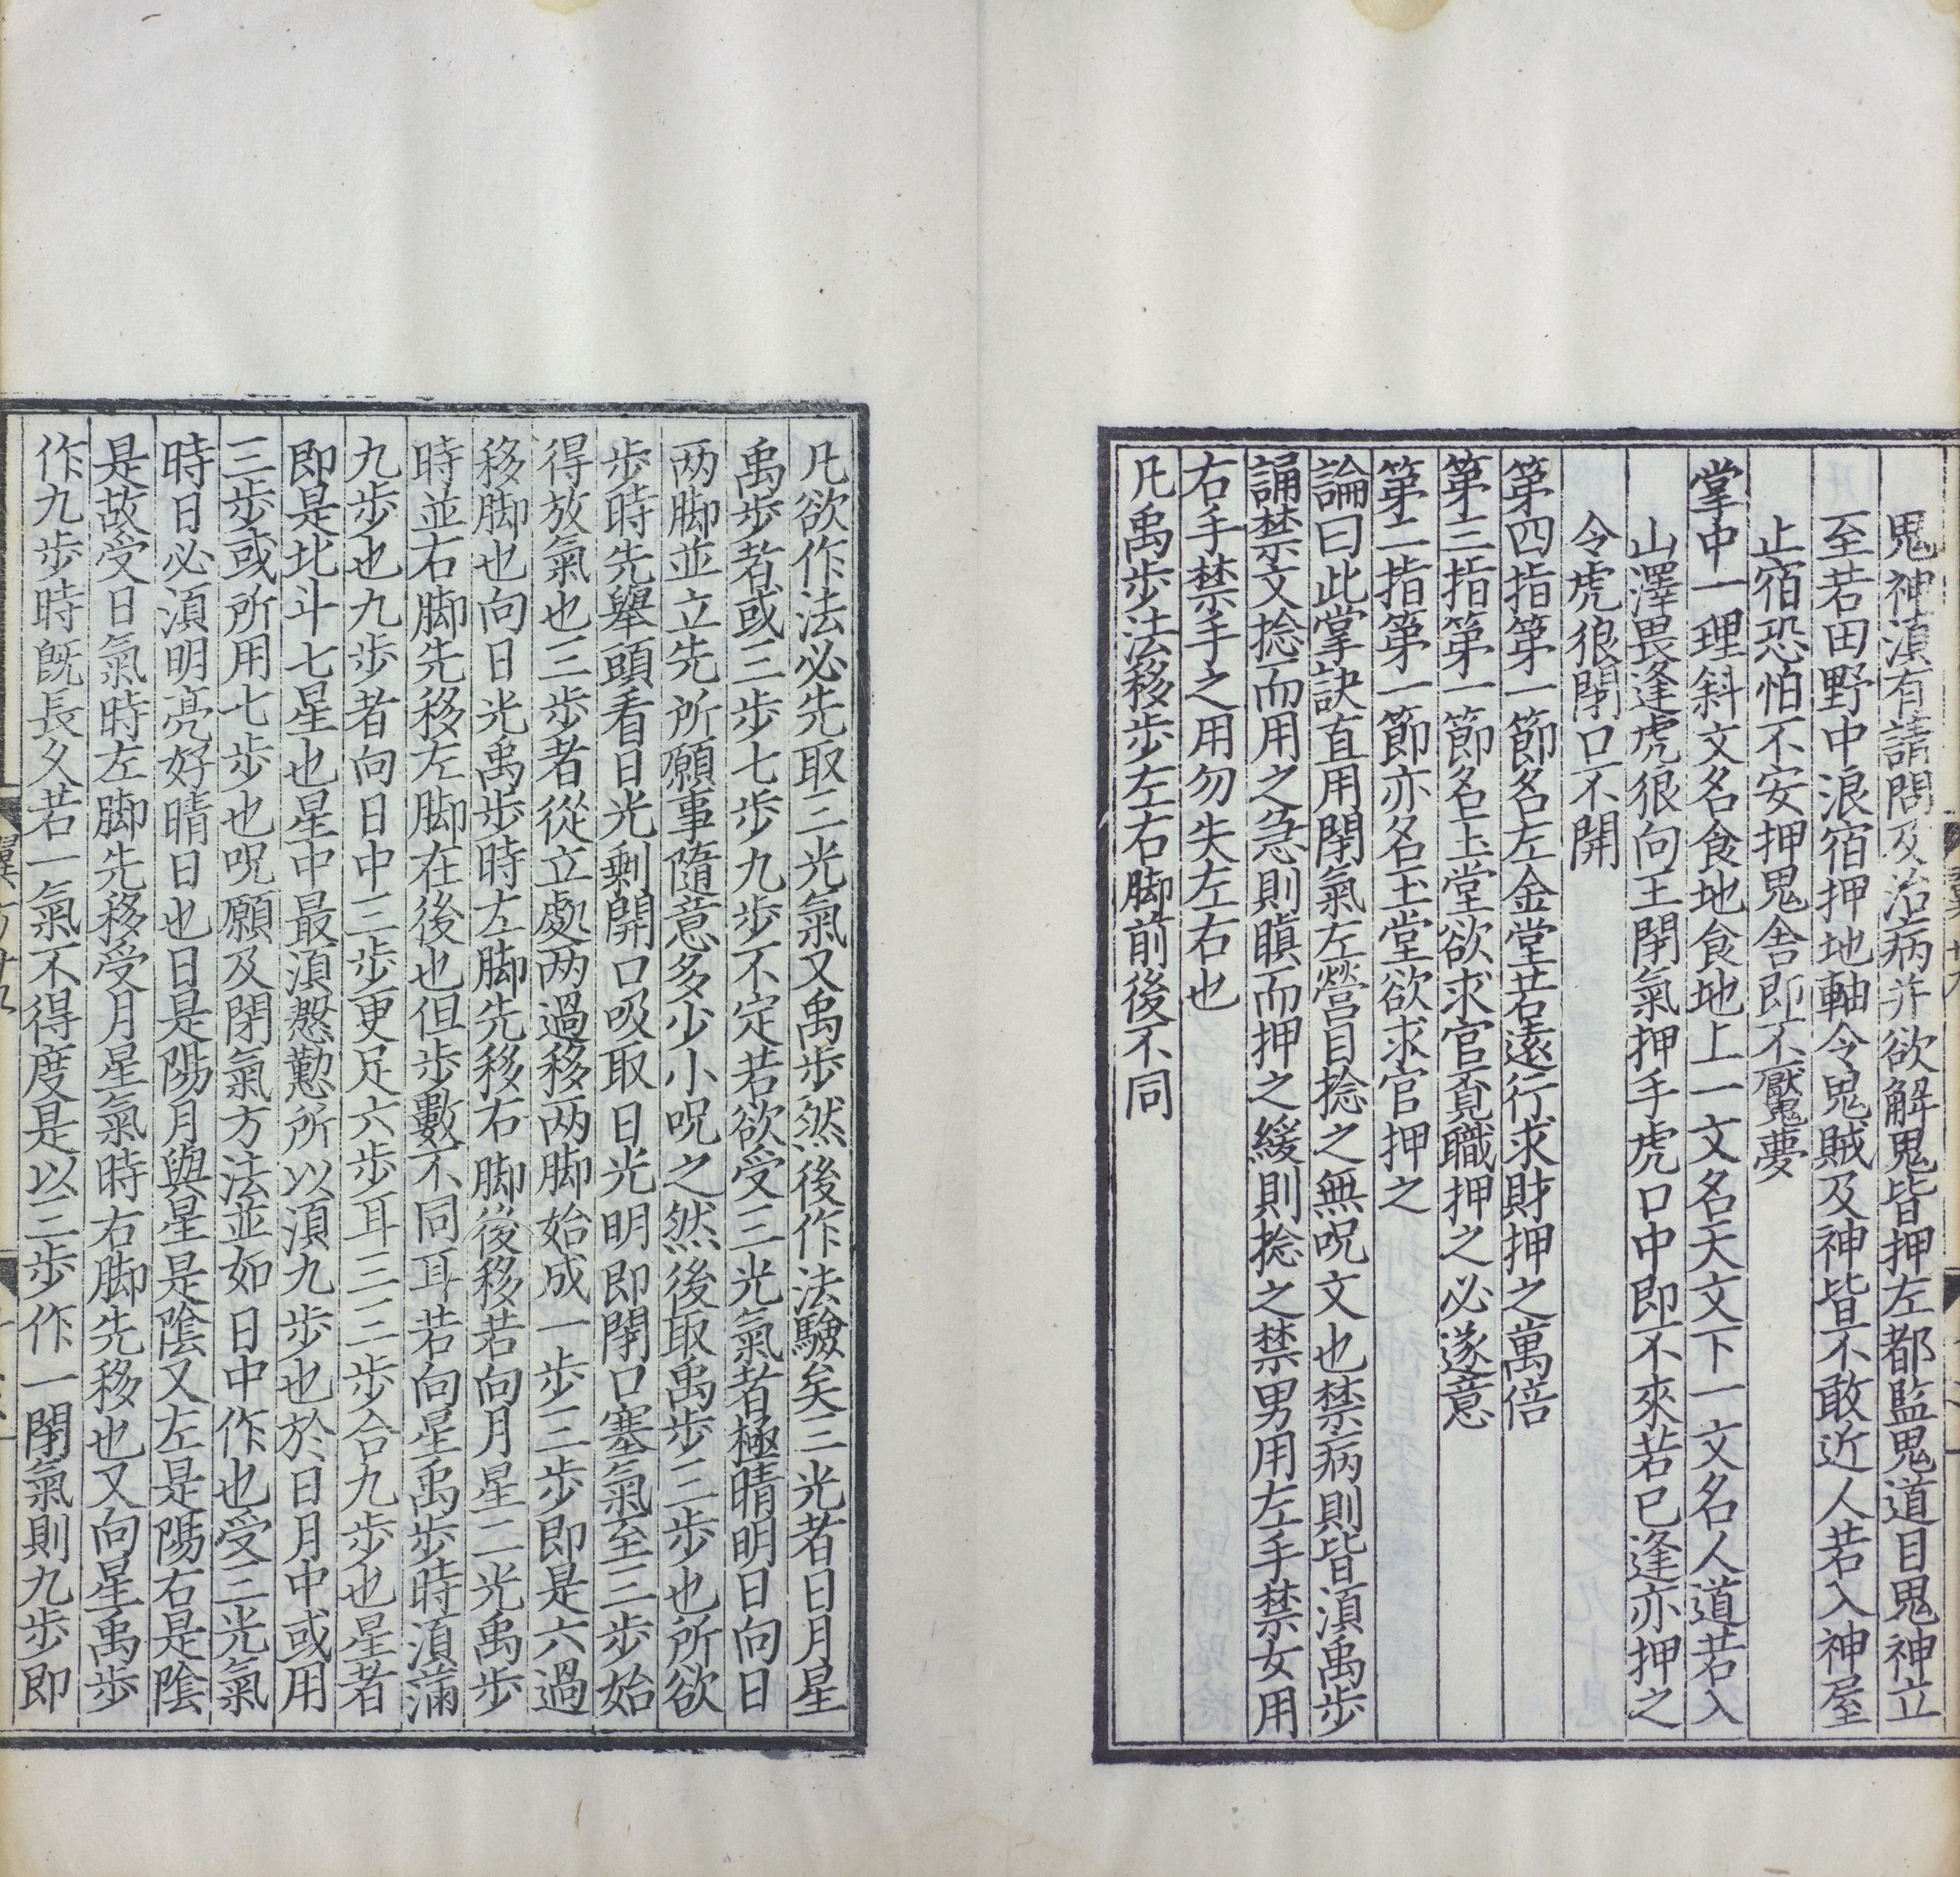 鬼神湏有請問及治病并欲解鬼皆押左都監鬼道目鬼神立
至若田野中浪宿押地軸令鬼賊及神皆不敢近人若入神屋
止宿恐怕不安押鬼舎即不魘夢
掌中一理斜文名食地食地上一文名天文下一文名人道若入
山澤畏逢虎狼向王閇氣押手虎口中即不來若已逢亦押之
令虎狼閇口不開
第四指第一節名左金堂若遠行求財押之萬倍
第三指第一節名玉堂欲求官覔職押之必遂意
第二指第一節亦名玉堂欲求官押之
論曰此掌訣直用閇氣左營目捻之無呪文也禁病則皆湏禹步
誦禁文捻而用之急則瞋而押之緩則捻之禁男用左手禁女用
右手禁手之用勿失左右也
凡禹步法移步左右脚前後不同
凡欲作法必先取三光氣又禹步然後作法驗矣三光者日月星
禹步者或三步七步九步不定若欲受三光氣者極晴明日向日
两脚並立先所願事隨意多少小呪之然後取禹步三步也所欲
步時先舉頭看日光剩開口吸取日光明即閇口塞氣至三步始
得放氣也三步者從立處两過移两脚始成一步三步即是六過
移脚也向日光禹步時左脚先移右脚後移若向月星二光禹步
時並右脚先移左脚在後也但步數不同耳若向星禹步時湏滿
九步也九步者向日中三步更足六步耳三三步合九步也星者
即是北斗七星也星中最湏慇懃所以湏九步也於日月中或用
三步或所用七步也呪願及閇氣方法並如日中作也受三光氣
時日必湏明亮好晴日也日是陽月與星是陰又左是陽右是陰
是故受日氣時左脚先移受月星氣時右脚先移也又向星禹步
作九步時旣長久若一氣不得度是以三步作一閇氣則九步即